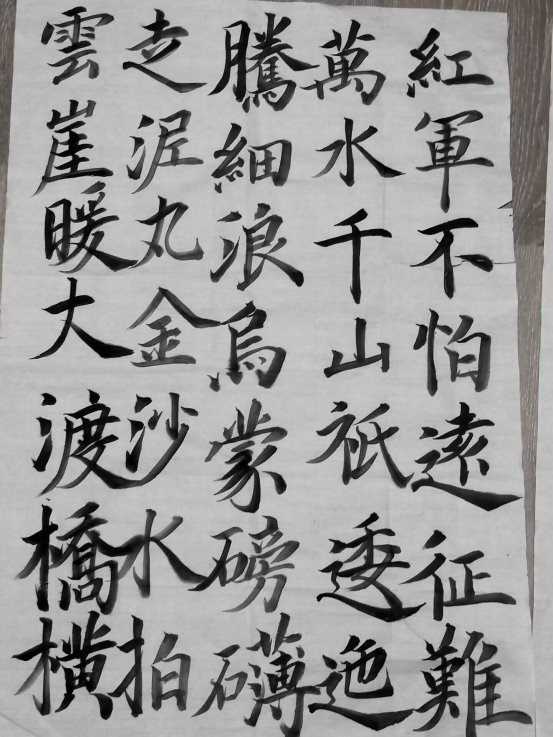 紅軍不怕遠征難
萬水千山祇逶迤
騰細浪烏蒙磅礴
走泥丸金沙水拍
雲崖暖大渡橋橫